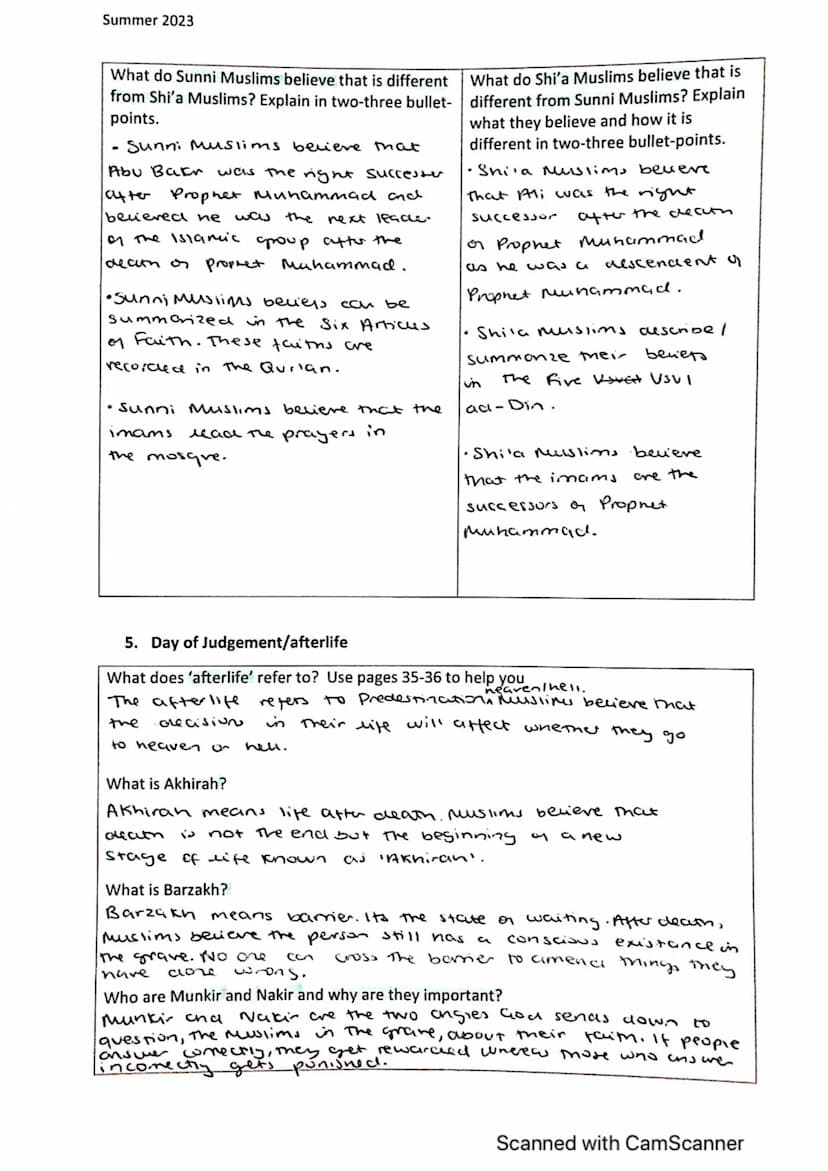 Summer 2023
What do Sunni Muslims believe that is different
from Shi'a Muslims? Explain in two-three bullet-
points.
- Sunni Muslims believe that
Abu Bakr was the right successer
after Prophet Muhammad and
believed he was the next leader
of the Islamic group after the
death of prophet Muhammad.
• Sunni Muslims beliefs can be
summarized in the Six Articles
of Faith. These faiths are
recorded in the Qur'an.
• Sunni Muslims believe that the
imams lead the prayers in
the mosque.
What do Shi'a Muslims believe that is
different from Sunni Muslims? Explain
what they believe and how it is
different in two-three bullet-points.
• Shi'a Muslims believe
that Ali was the right
successor after the death
of Prophet Muhammad
as he was a descendent of
Prophet Muhammad.
• Shi'a Muslims describe/
summarize their beliefs
in the Five Usul
ad-Din.
• Shi'a Muslims believe
that the imams are the
successors of Prophet
Muhammad.
5. Day of Judgement/afterlife
What does 'afterlife' refer to? Use pages 35-36 to help you
heaven/hell.
The afterlife refers to Predestination Muslims believe that
the decision in their life will affect whether they go
to heaven or hell.
What is Akhirah?
Akhirah means life after death. Muslims believe that
death is not the end but the beginning of a new
stage of life known as 'Akhirah'.
What is Barzakh?
Barzakh means barrier. Its the state of waiting. After death,
Muslims believe the person still has a conscious existance in
the grave. No one can cross the barrier to amend things they
have done wrong.
Who are Munkir and Nakir and why are they important?
Munkir and Nakir are the two angles God sends down to
question, the Muslims in the grave, about their faith. If people
answer correctly, they get rewarded whereas those who answer
incorrectly gets punished.
Scanned with CamScanner